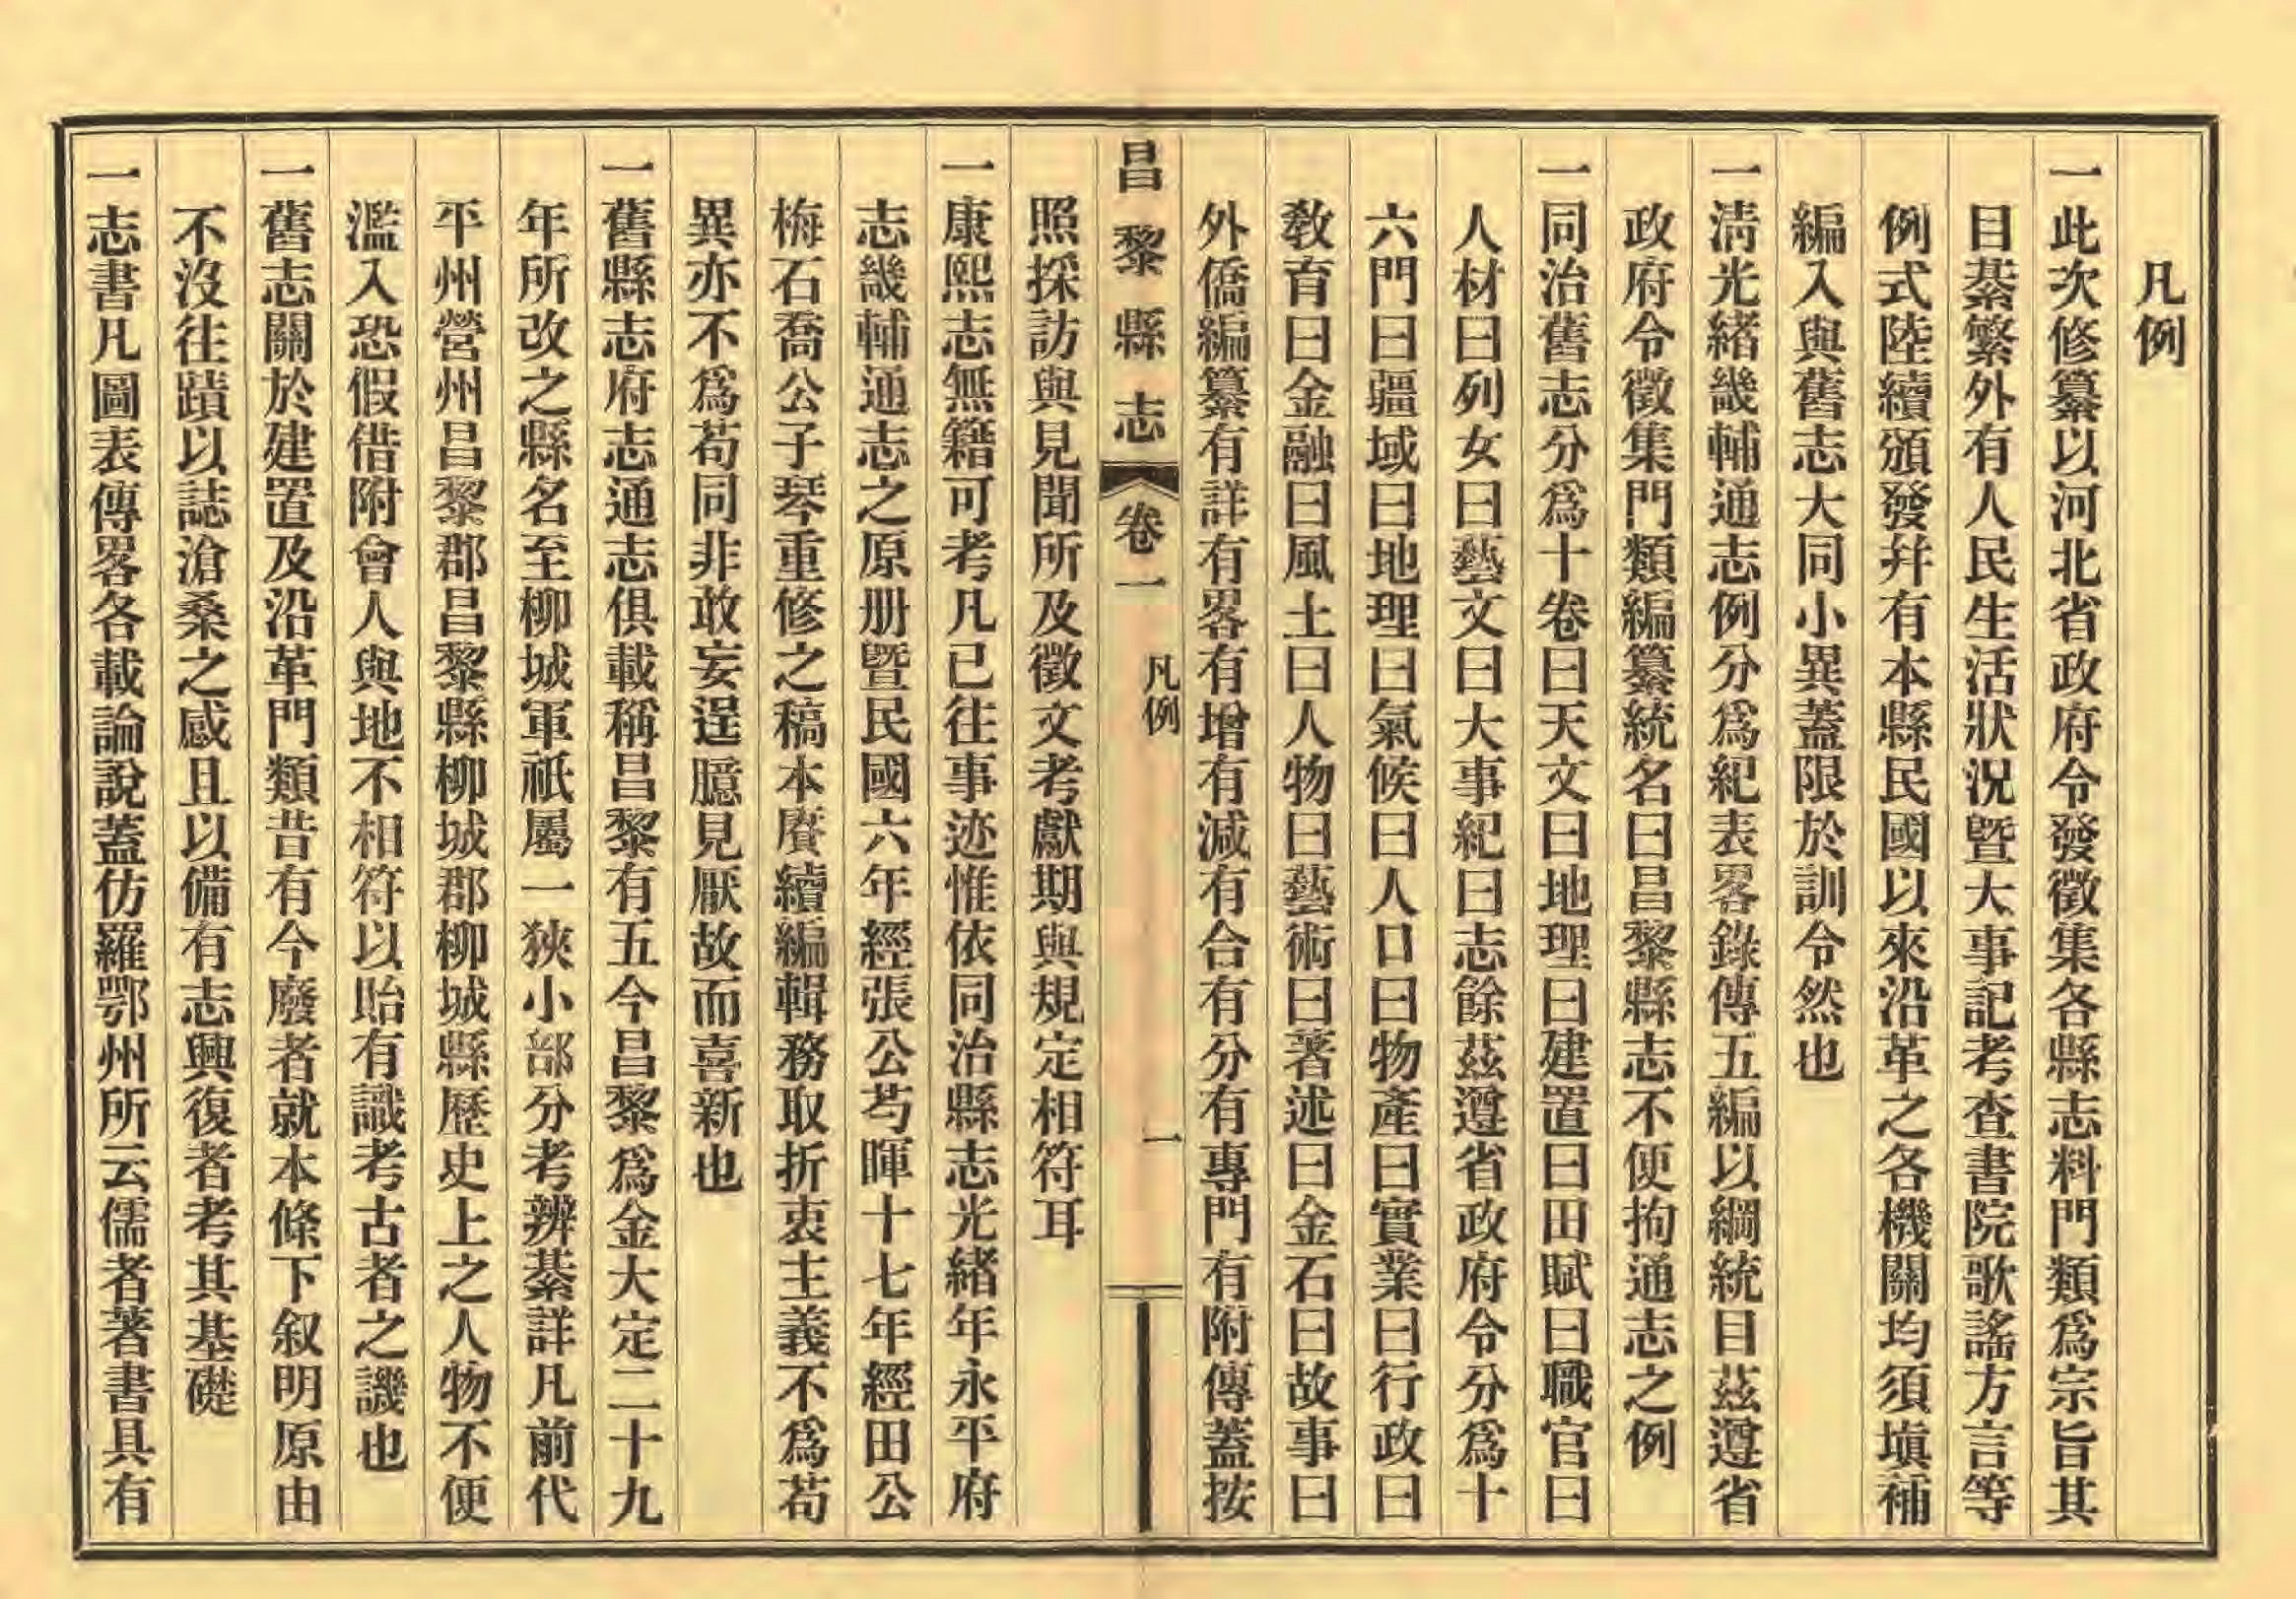 凡例
一此次修纂以河北省政府令發徵集各縣志料門類爲宗旨其
目綦繁外有人民生活狀況曁大事記考查書院歌謠方言等
例式陸續頒發幷有本縣民國以來沿革之各機關均須塡補
編入與舊志大同小異蓋限於訓令然也
一淸光緖畿輔通志例分爲紀表畧錄傳五編以綱統目茲遵省
政府令徵集門類編纂統名曰昌黎縣志不便拘通志之例
一同治舊志分爲十卷曰天文曰地理曰建置曰田賦曰職官曰
人材曰列女曰藝文曰大事紀曰志餘茲遵省政府令分爲十
六門曰疆域曰地理曰氣候曰人口曰物產曰實業曰行政曰
敎育曰金融曰風土曰人物曰藝術曰著述曰金石曰故事曰
外僑編纂有詳有畧有增有減有合有分有專門有附傳蓋按
昌黎縣志 卷一 凡例 一
照採訪與見聞所及徵文考獻期與規定相符耳
一康熙志無籍可考凡已往事迹惟依同治縣志光緖年永平府
志畿輔通志之原册曁民國六年經張公芍暉十七年經田公
梅石喬公子琴重修之稿本賡續編輯務取折衷主義不爲苟
異亦不爲苟同非敢妄逞臆見厭故而喜新也
一舊縣志府志通志俱載稱昌黎有五今昌黎爲金大定二十九
年所改之縣名至柳城軍祇屬一狹小部分考辨綦詳凡前代
平州營州昌黎郡昌黎縣柳城郡柳城縣歷史上之人物不便
濫入恐假借附會人與地不相符以貽有識考古者之譏也
一舊志關於建置及沿革門類昔有今廢者就本條下叙明原由
不沒往蹟以誌滄桑之感且以備有志興復者考其基礎
一志書凡圖表傳畧各載論說蓋仿羅鄂州所云儒者著書具有